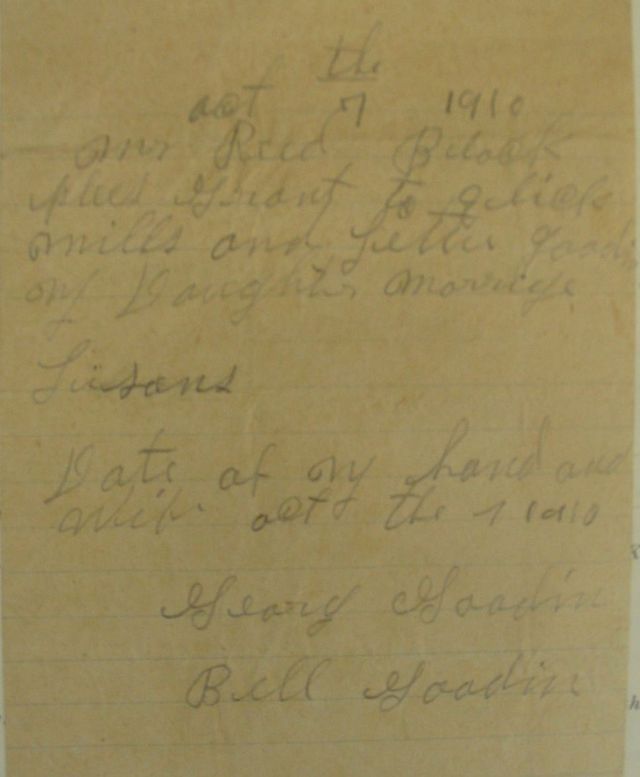 th
oct 7 1910
mr Reed Black
plees Grant to glick
mills and Lettie goodin
my Daughter marrige
Lisons
Date of my hand and
wife oct the 7 1910
Georg Goodin
Bell Goodin